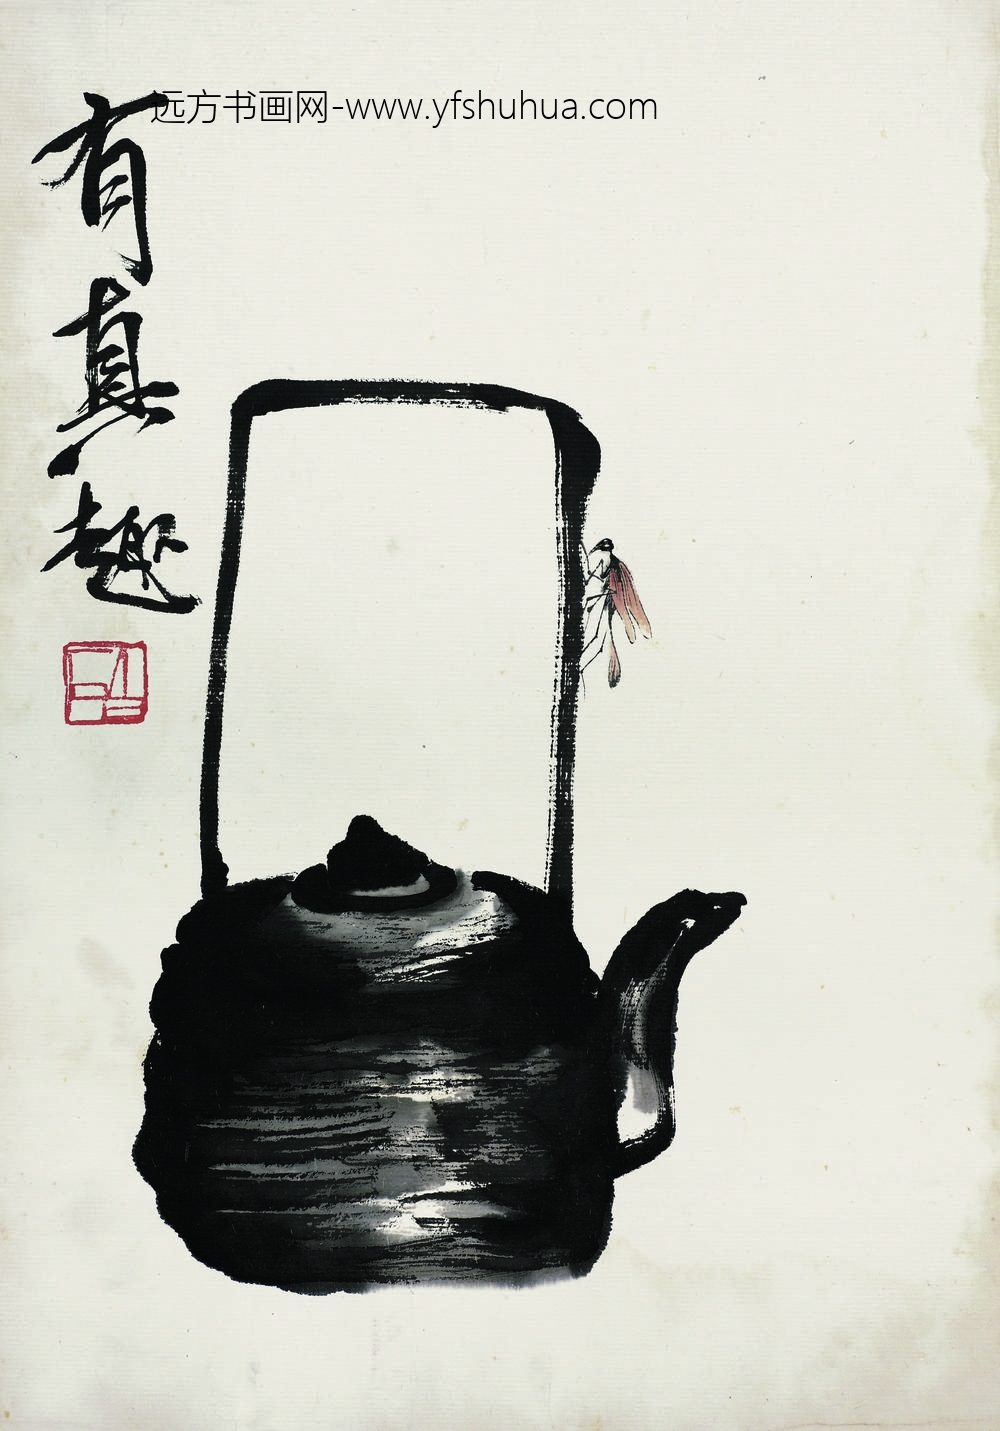 远方书画网-www.yfshuhua.com
有真趣